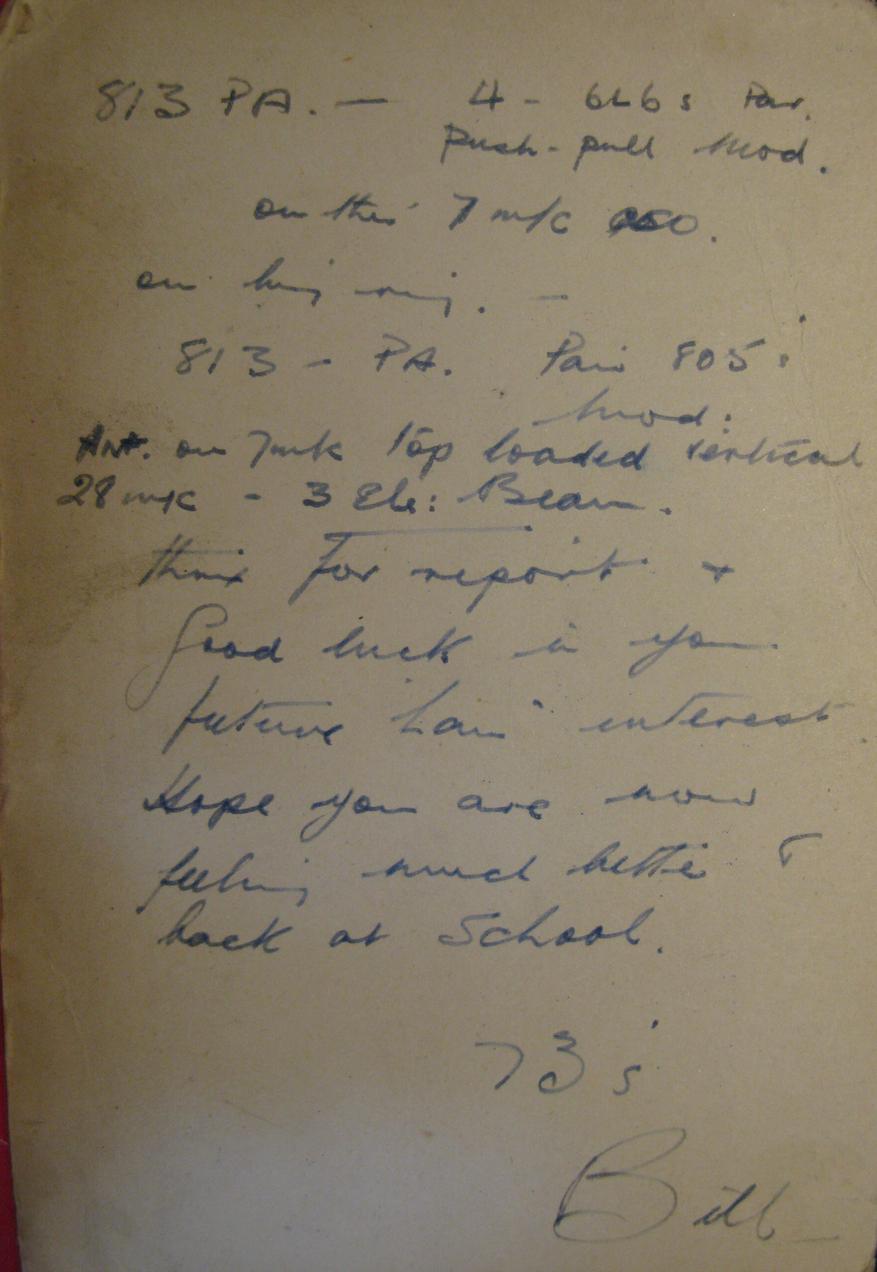 813 PA. — 4 - 6L6s Par.
Push-pull Mod.
on this 7 m/c QSO.
on big rig. —
813 - PA. Pair 805s
Mod:
Ant. on 7mk Top loaded vertical
28 m/c - 3 Ele: Beam.
Thnx For report +
Good luck in your
future "ham" interest
Hope you are now
feeling much better &
back at School.
73's
Bill